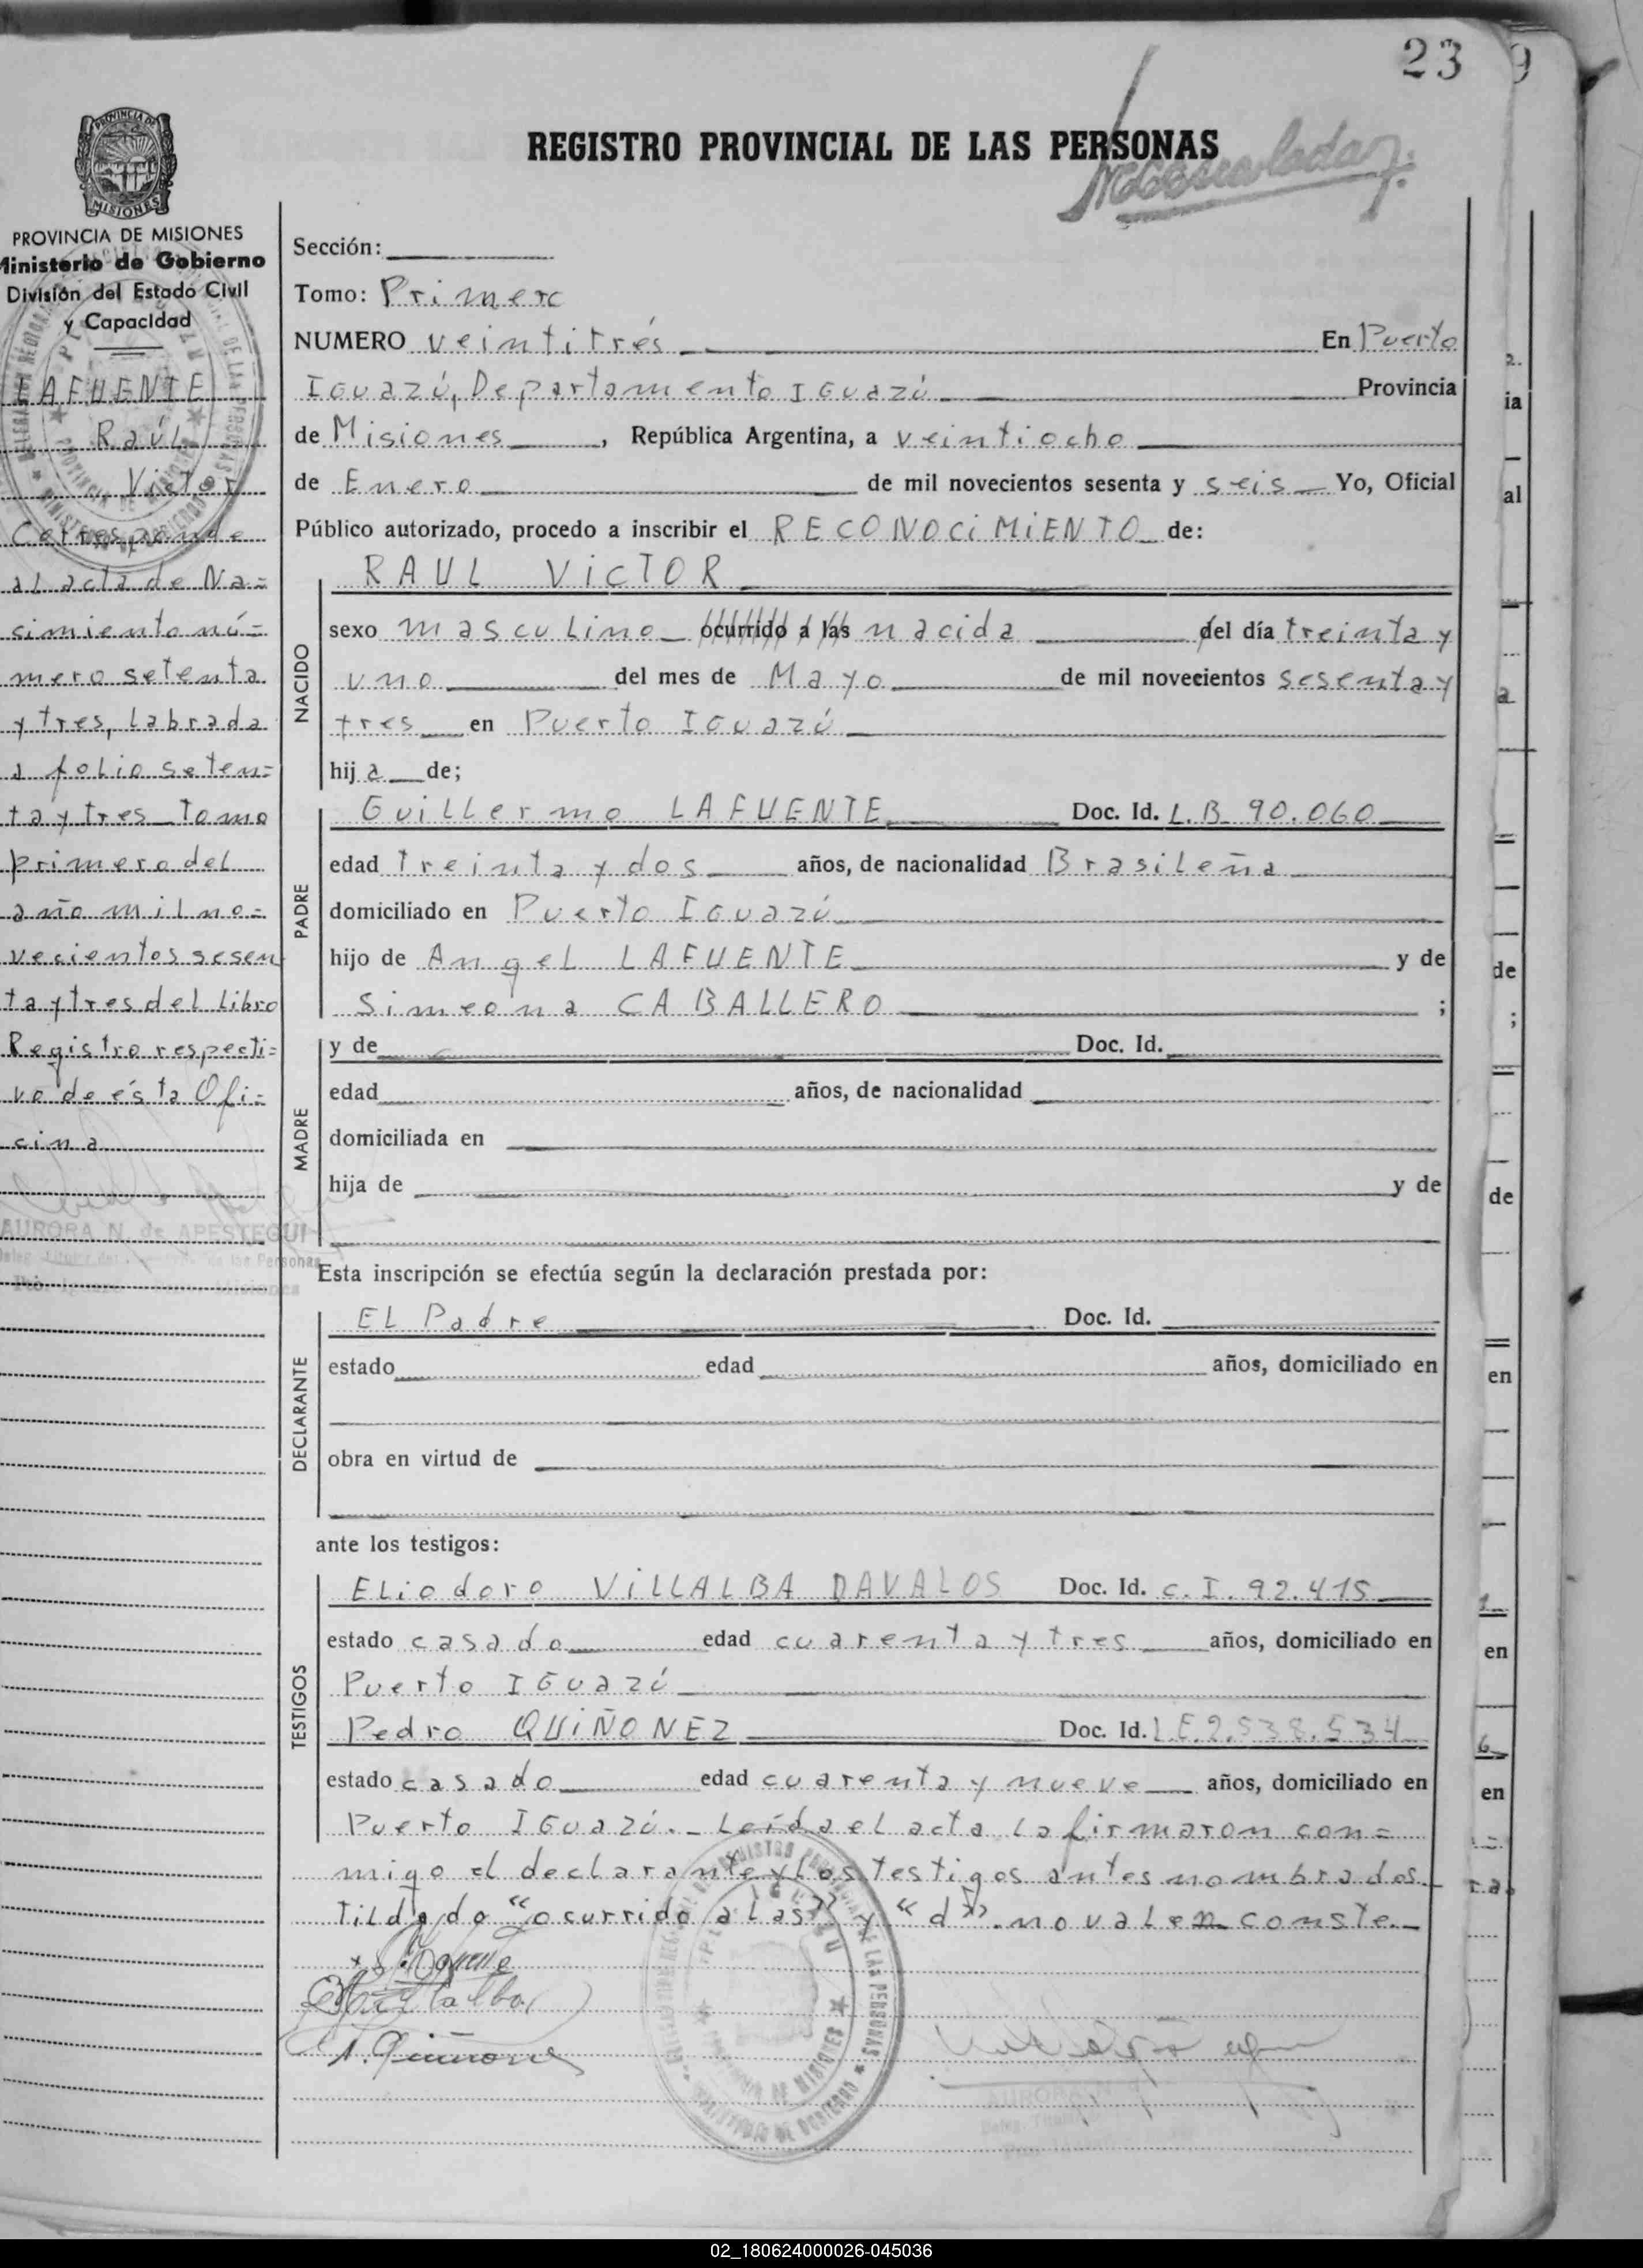 23
9
REGISTRO PROVINCIAL DE LAS PERSONAS
PROVINCIA DE
MISIONES
PROVINCIA DE MISIONES
Ministerio de Gobierno
División del Estado Civil
y Capacidad
LAFUENTE
Raúl
Victor
Corresponde
al acta de Na=
simiento nú=
mero setenta
y tres, labrada
a folio seten=
ta y tres Tomo
primero del
año mil no=
vecientos sesen
ta y tres del libro
Registro respecti=
vo de ésta Ofi=
cina
AURORA N. de APESTEGUI
Sección:
Tomo: Primero
NUMERO veintitrés En Puerto
Iguazú, Departamento Iguazú Provincia
de Misiones, República Argentina, a veintiocho
de Enero de mil novecientos sesenta y seis Yo, Oficial
Público autorizado, procedo a inscribir el RECONOCIMIENTO de:
NACIDO
RAUL VICTOR
sexo masculino ocurrido a las nacida del día treinta y
uno del mes de Mayo de mil novecientos sesenta y
tres en Puerto Iguazú
hija de;
PADRE
Guillermo LAFUENTE Doc. Id. L.B. 90.060
edad treinta y dos años, de nacionalidad Brasileña
domiciliado en Puerto Iguazú
hijo de Angel LAFUENTE y de
Simeona CABALLERO ;
MADRE
y de Doc. Id.
edad años, de nacionalidad
domiciliada en
hija de y de
Esta inscripción se efectúa según la declaración prestada por:
DECLARANTE
El Padre Doc. Id.
estado edad años, domiciliado en
obra en virtud de
ante los testigos:
TESTIGOS
Eliodoro VILLALBA DAVALOS Doc. Id. c.I. 92.415
estado casado edad cuarenta y tres años, domiciliado en
Puerto Iguazú
Pedro QUIÑONEZ Doc. Id. L.E 2.538.534
estado casado edad cuarenta y nueve años, domiciliado en
Puerto Iguazú.- Leída el acta la firmaron con=
migo el declarante y los testigos antes nombrados
Tildado "ocurrido a las" y "d". no valen conste
02_180624000026-045036